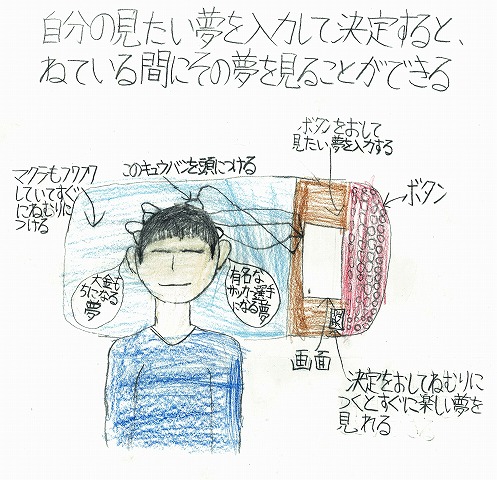 自分の見たい夢を入力して決定すると、
ねている間にその夢を見ることができる
ボタンをおして
見たい夢を入力する
マクラもフワフワ
していてすぐ
にねむりに
つける
このキュウバンを頭につける
ボタン
大金も
ちになる
夢
有名な
サッカー選手
になる夢
画面
決定をおしてねむりに
つくとすぐに楽しい夢を
見れる